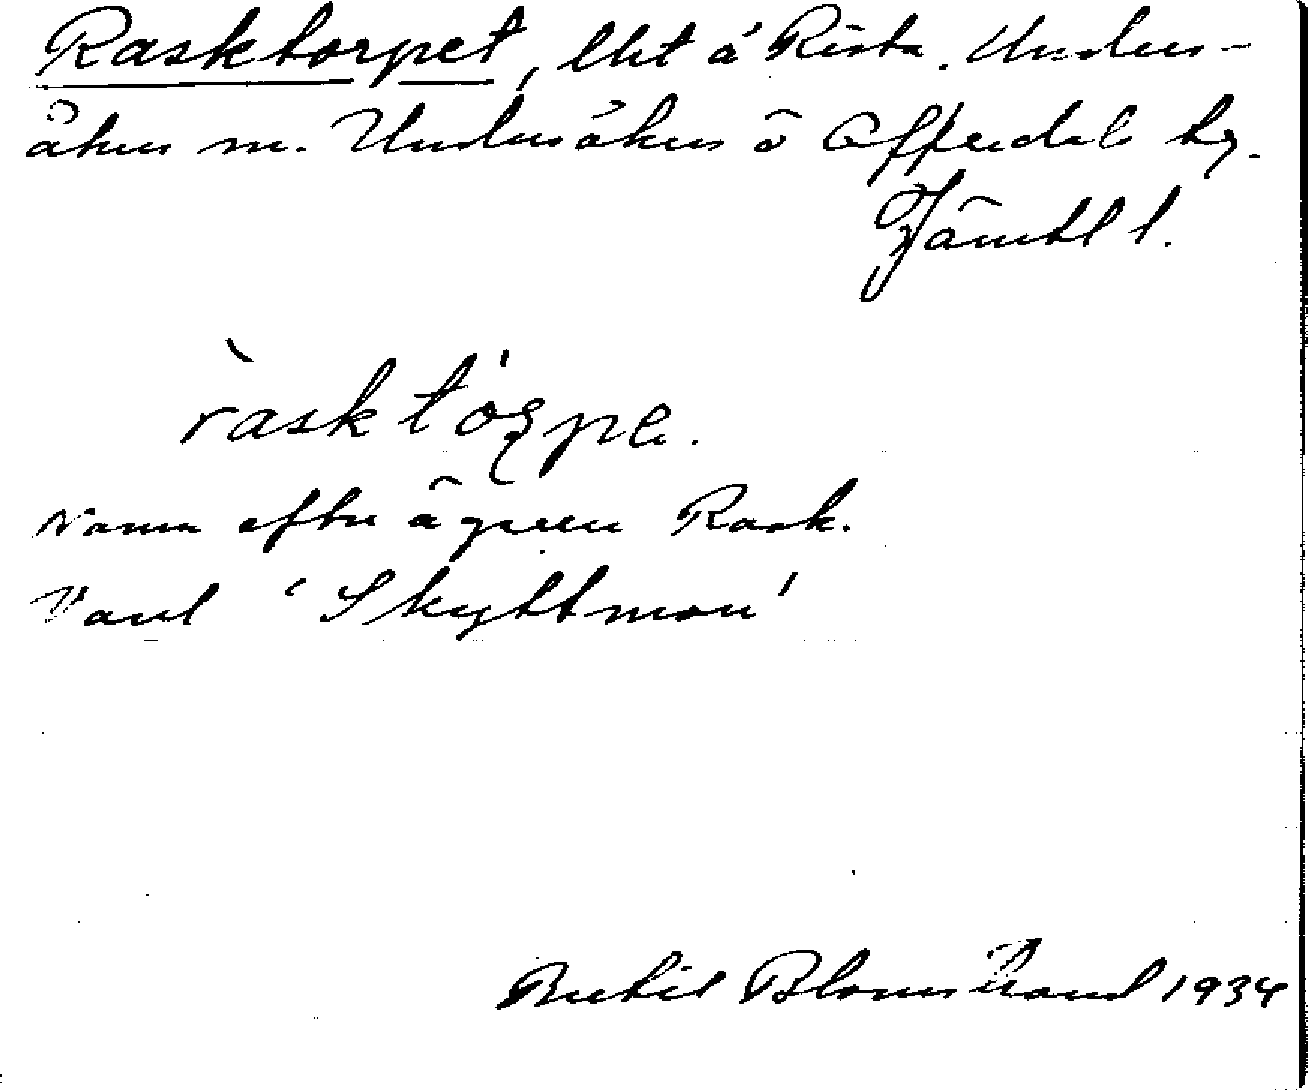 Rasktorpet, lht å Rista. Unders-
åkers sn. Undersåkers o Offerdals tg.
Jämtl l.
rasktórpe.
Namn efter ägaren Rask.
Vanl 'Skyttmon'
Bertil Blomstrand 1934